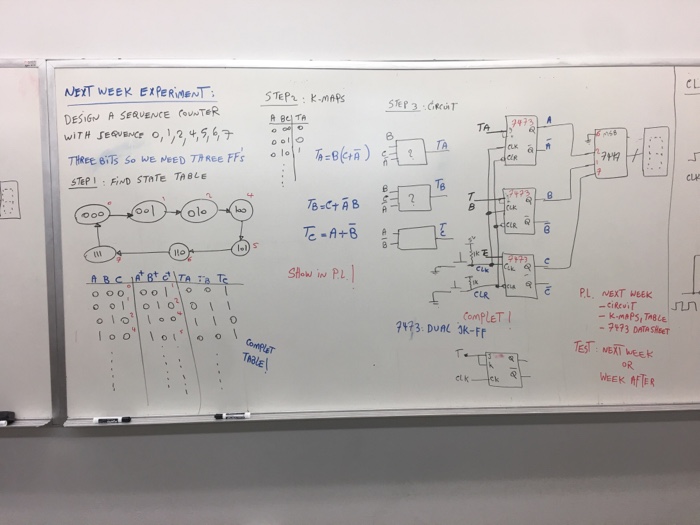 NEXT WEEK EXPERIMENT:
DESIGN A SEQUENCE COUNTER
WITH SEQUENCE 0,1,2,4,5,6,7
THREE BITS SO WE NEED THREE FF'S
STEP 1: FIND STATE TABLE
000 0 001 1 010 2 100 4
111 7 110 6 101 5
A B C A+ B+ C+ TA TB TC
0 0 0 0 0 1 0 0 1
0 0 1 0 1 0 0 1 1
0 1 0 1 0 0 1 1 0
1 0 0 1 0 1 0 0 1
COMPLET
TABLE!
STEP 2: K-MAPS
A BC TA
0 00 0
0 01 0
0 10 1
TA=B(C+Ā)
TB=C+ĀB
TC=A+B̄
SHOW IN P.L!
STEP 3: CIRCUIT
B
C
A
?
TA
B
C
A
?
TB
A
B
TC
TA
7473
CLK
CLR
Q
Q̄
A
Ā
T
B
7473
CLK
CLR
Q
Q̄
B
B̄
5V
1K
TC
CLK
7473
CLK
CLR
Q
Q̄
C
C̄
1K
CLR
MSB
7447
COMPLET!
7473: DUAL JK-FF
T
J
K
Q
Q̄
CLK
CLK
P.L. NEXT WEEK
- CIRCUIT
- K-MAPS, TABLE
- 7473 DATASHEET
TEST: NEXT WEEK
OR
WEEK AFTER
CL
CLK